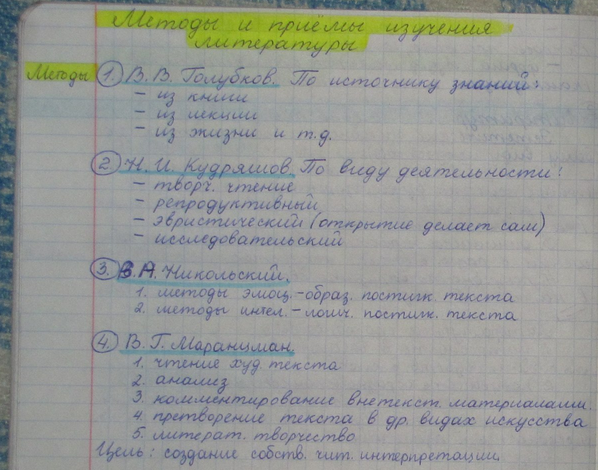 Методы и приёмы изучения
литературы
Методы
1. В. В. Голубков. По источнику знаний:
- из книги
- из лекции
- из жизни и т.д.
2 Н. И. Кудряшов. По виду деятельности:
- творч. чтение
- репродуктивный
- эвристический (открытие делает сам)
- исследовательский
3. В. А. Никольский.
1. методы эмоц.-образ. постиж. текста
2. методы интел.-логич. постиж. текста
4. В. Г. Маранцман
1. чтение худ. текста
2. анализ
3 комментирование внетекст. материалами
4. претворение текста в др. видах искусства
5. литерат. творчество
Цель: создание собств. чит. интерпретации.